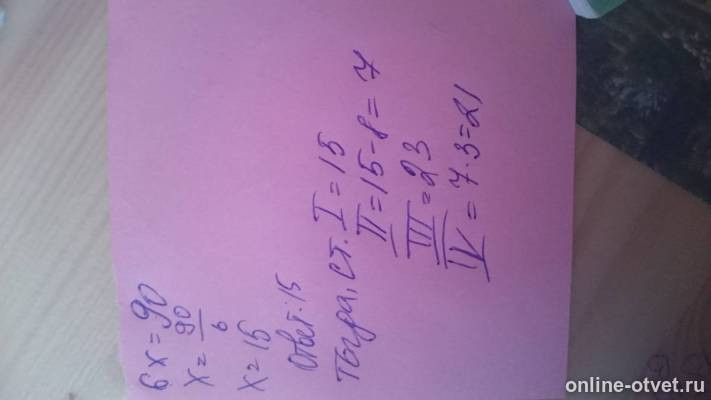 6x=90
x=90/6
x=15
Ответ: 15
Тогда, ст. I=15
II=15-8=7
III=23
IV=7·3=21
online-otvet.ru